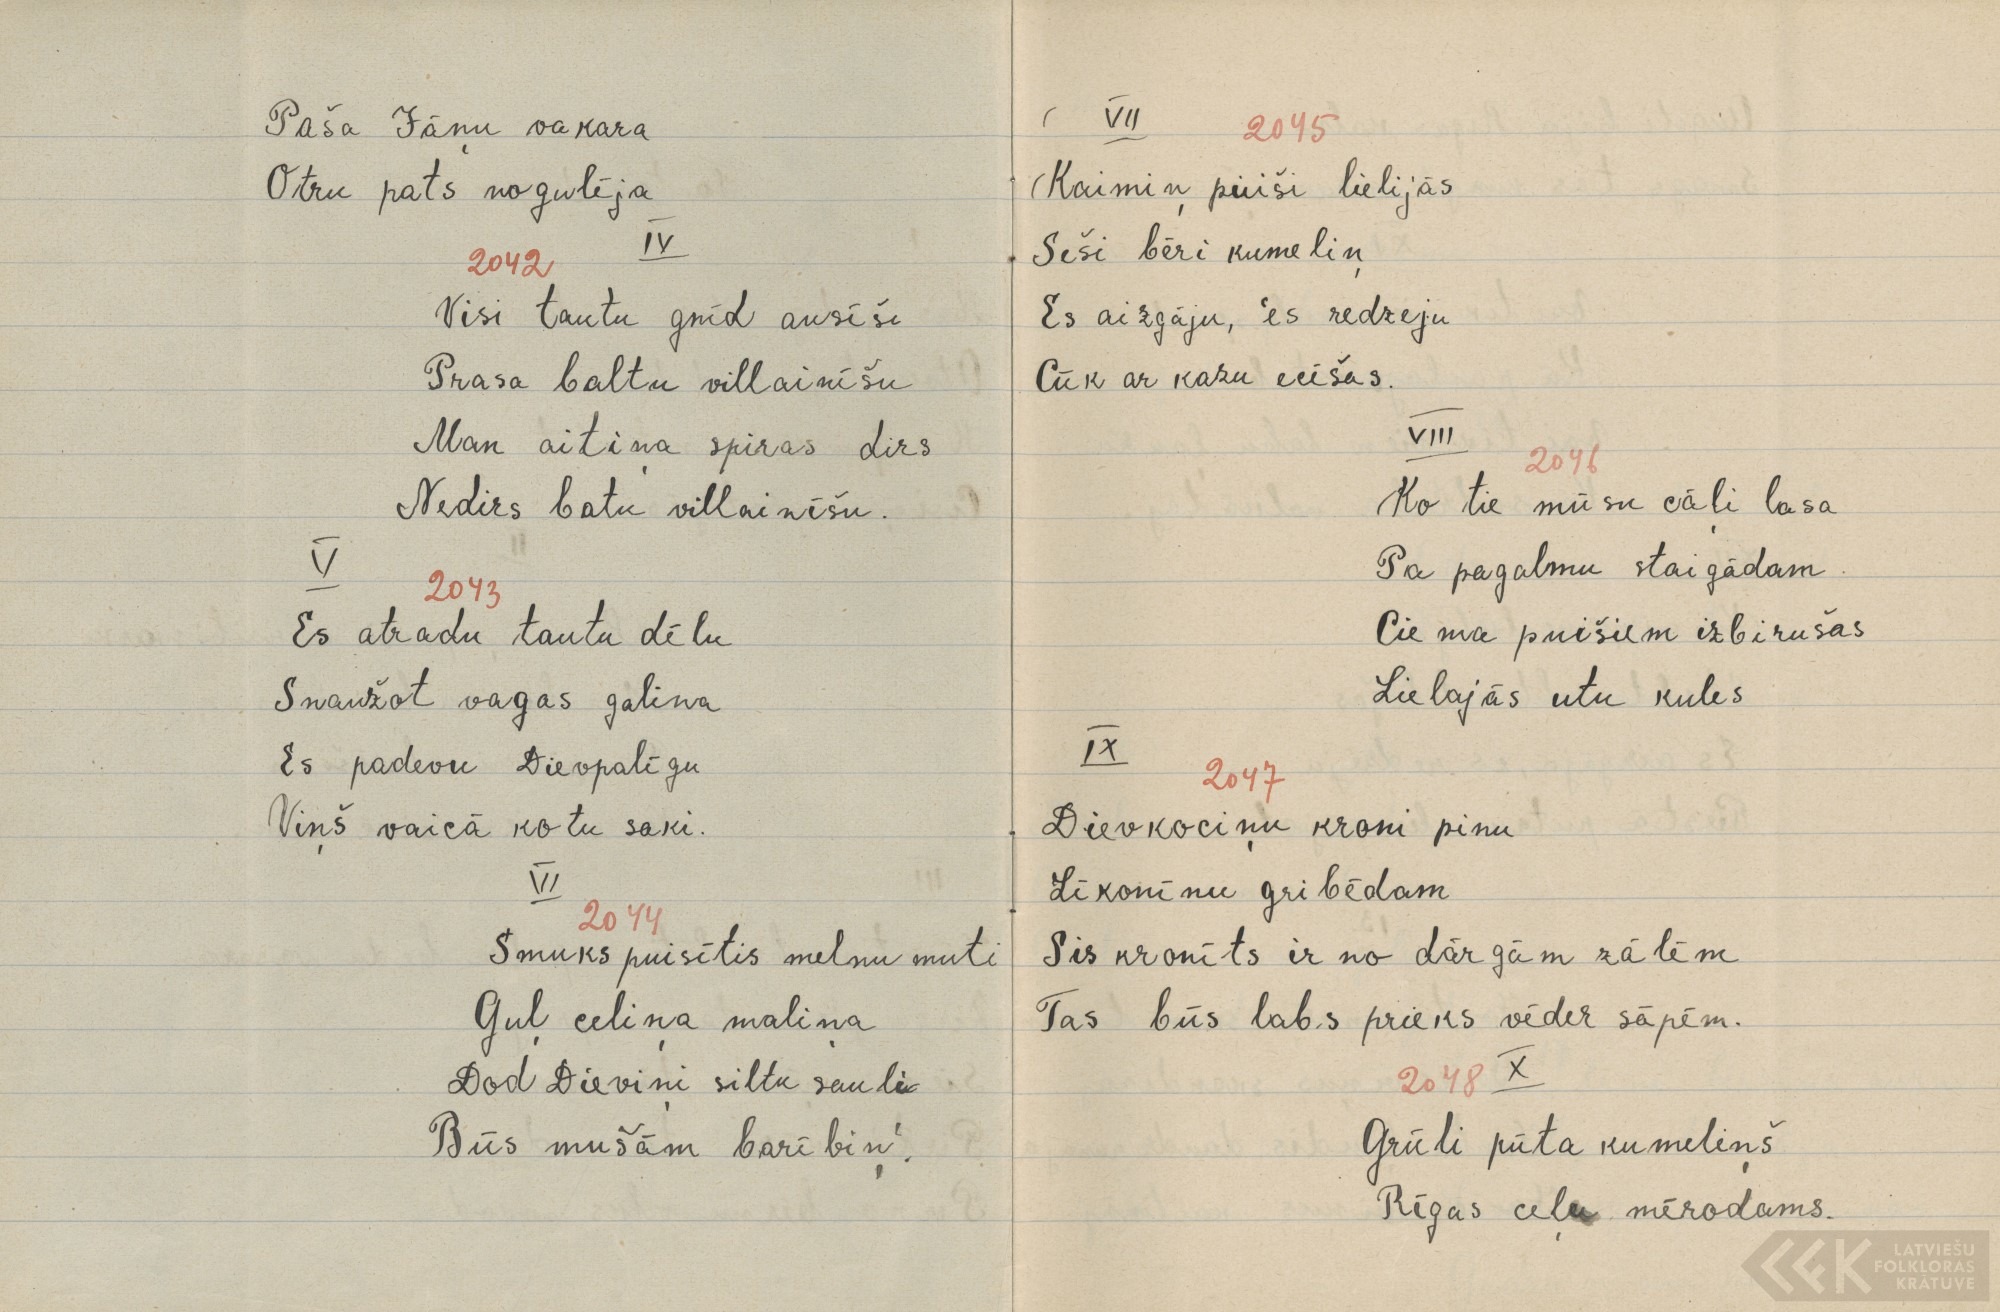 Paša Jāņu vakara
Otru pats nogulēja
IV
2042
Visi tautu gnīd ausīši
Prasa baltu villainīšu
Man aitiņa spiras dirs
Nedirs batu villainīšu.
V
2043
Es atradu tautu dēlu
Snaužot vagas galina
Es padevu Dievpalīgu
Viņš vaicā ko tu saki.
VII
2044
Smuks puisītis melnu muti
Guļ celiņa maliņa
Dod Dieviņi siltu sauli
Būs mušām barībiņ'.
VII
2045
Kaimiņ puiši lielijās
Seši bēri kumeliņ
Es aizgāju, es redzeju
Cūk ar kazu ecēšas.
VIII
2046
Ko tie mūsu cāļi lasa
Pa pagalmu staigādam
Ciema puišiem izbirušas
Lielajās utu kules
IX
2047
Dievkociņu kroni pinu
Līkonīnu gribēdam
Sis kronīts ir no dārgām zālēm
Tas būs labs prieks vēder sāpēm.
2048
X
Grūli pūta kumeliņš
Rīgas ceļu mērodams.
LATVIEŠU
FOLKLORAS
KRĀTUVE